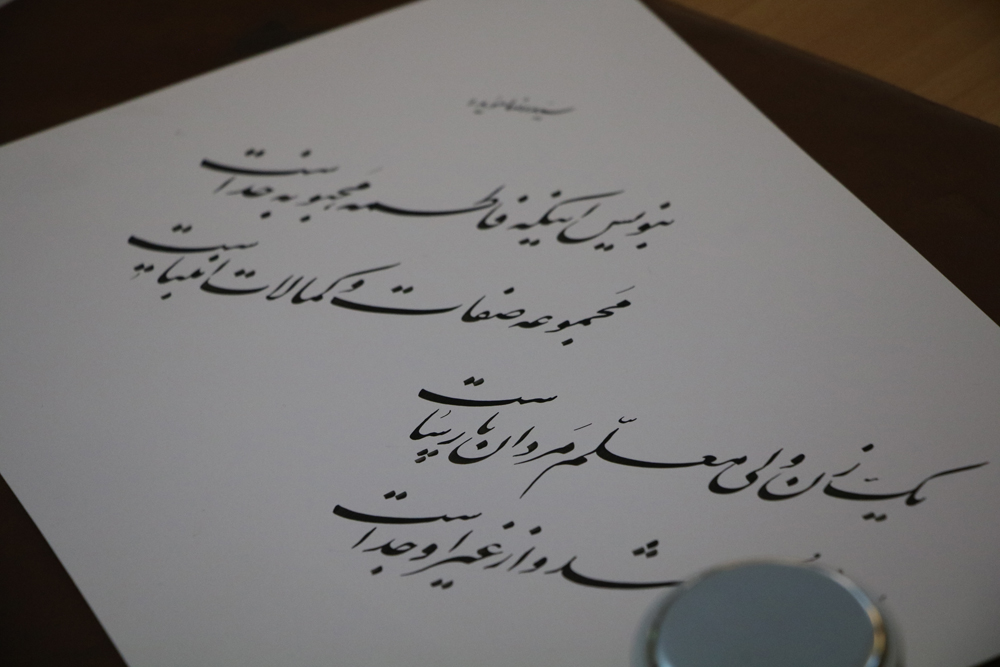 سیدرضا مؤید
بنویس اینکه فاطمه محبوبه خداست
مجموعه صفات و کمالات انبیاست
یک زن ولی معلّم مردان پارساست
شد و از غیر او جداست